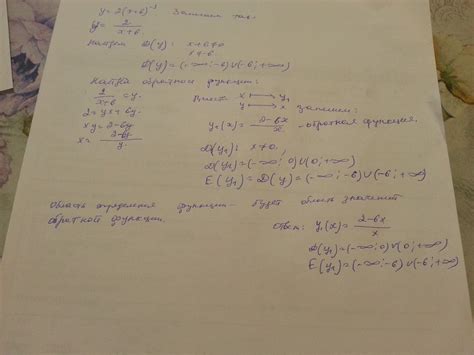 y = 2(x+6)⁻¹ Запишем так:
y = 2/(x+6)
Найдём D(y): x+6≠0
x≠-6
D(y)=(-∞;-6)∪(-6;+∞)
Найдём обратную функцию:
2/(x+6) = y.
2 = yx + 6y.
xy = 2-6y
x = (2-6y)/y.
x ↔ y₁
y ↔ x запишем:
y₁(x) = (2-6x)/x - обратная функция.
D(y₁): x≠0,
D(y₁)=(-∞;0)∪(0;+∞)
E(y₁)=D(y)=(-∞;-6)∪(-6;+∞)
Область определения функции - будет область значений
обратной функции.
Ответ: y₁(x) = (2-6x)/x
D(y₁)=(-∞;0)∪(0;+∞)
E(y₁)=(-∞;-6)∪(-6;+∞)